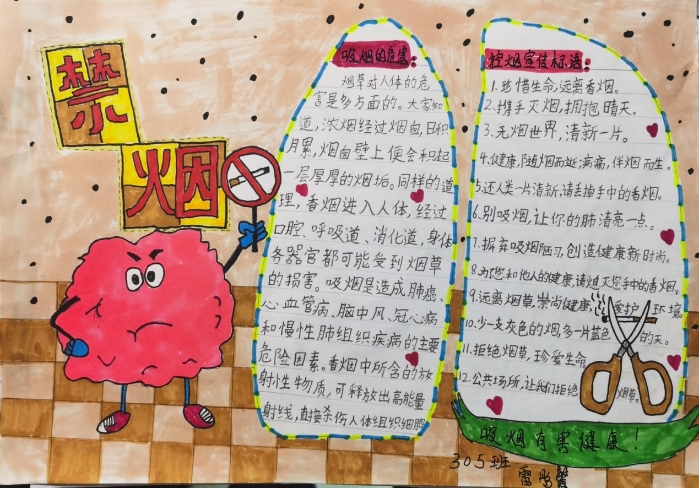 禁
烟
吸烟的危害:
烟草对人体的危
害是多方面的。大家知
道,浓烟经过烟囱,日积
月累,烟囱壁上便会积起
一层厚厚的烟垢。同样的道
理,香烟进入人体,经过
口腔、呼吸道、消化道,身体
各器官都可能受到烟草
的损害。吸烟是造成肺癌、
心血管病、脑中风、冠心病
和慢性肺组织疾病的主要
危险因素。香烟中所含的放
射性物质,可释放出高能量
射线,直接杀伤人体组织细胞
控烟宣传标语:
1.珍惜生命,远离香烟。
2.携手灭烟,拥抱晴天。
3.无烟世界,清新一片。
4.健康,随烟而逝;病痛,伴烟而生。
5.还人类一片清新,请丢掉手中的香烟。
6.别吸烟,让你的肺清亮一点。
7.摒弃吸烟陋习,创造健康新时尚。
8.为您和他人的健康,请熄灭您手中的香烟。
9.远离烟草,崇尚健康,爱护环境
10.少一支灰色的烟,多一片蓝色的天。
11.拒绝烟草,珍爱生命
12.公共场所,让我们拒绝烟草。
吸烟有害健康!
305班